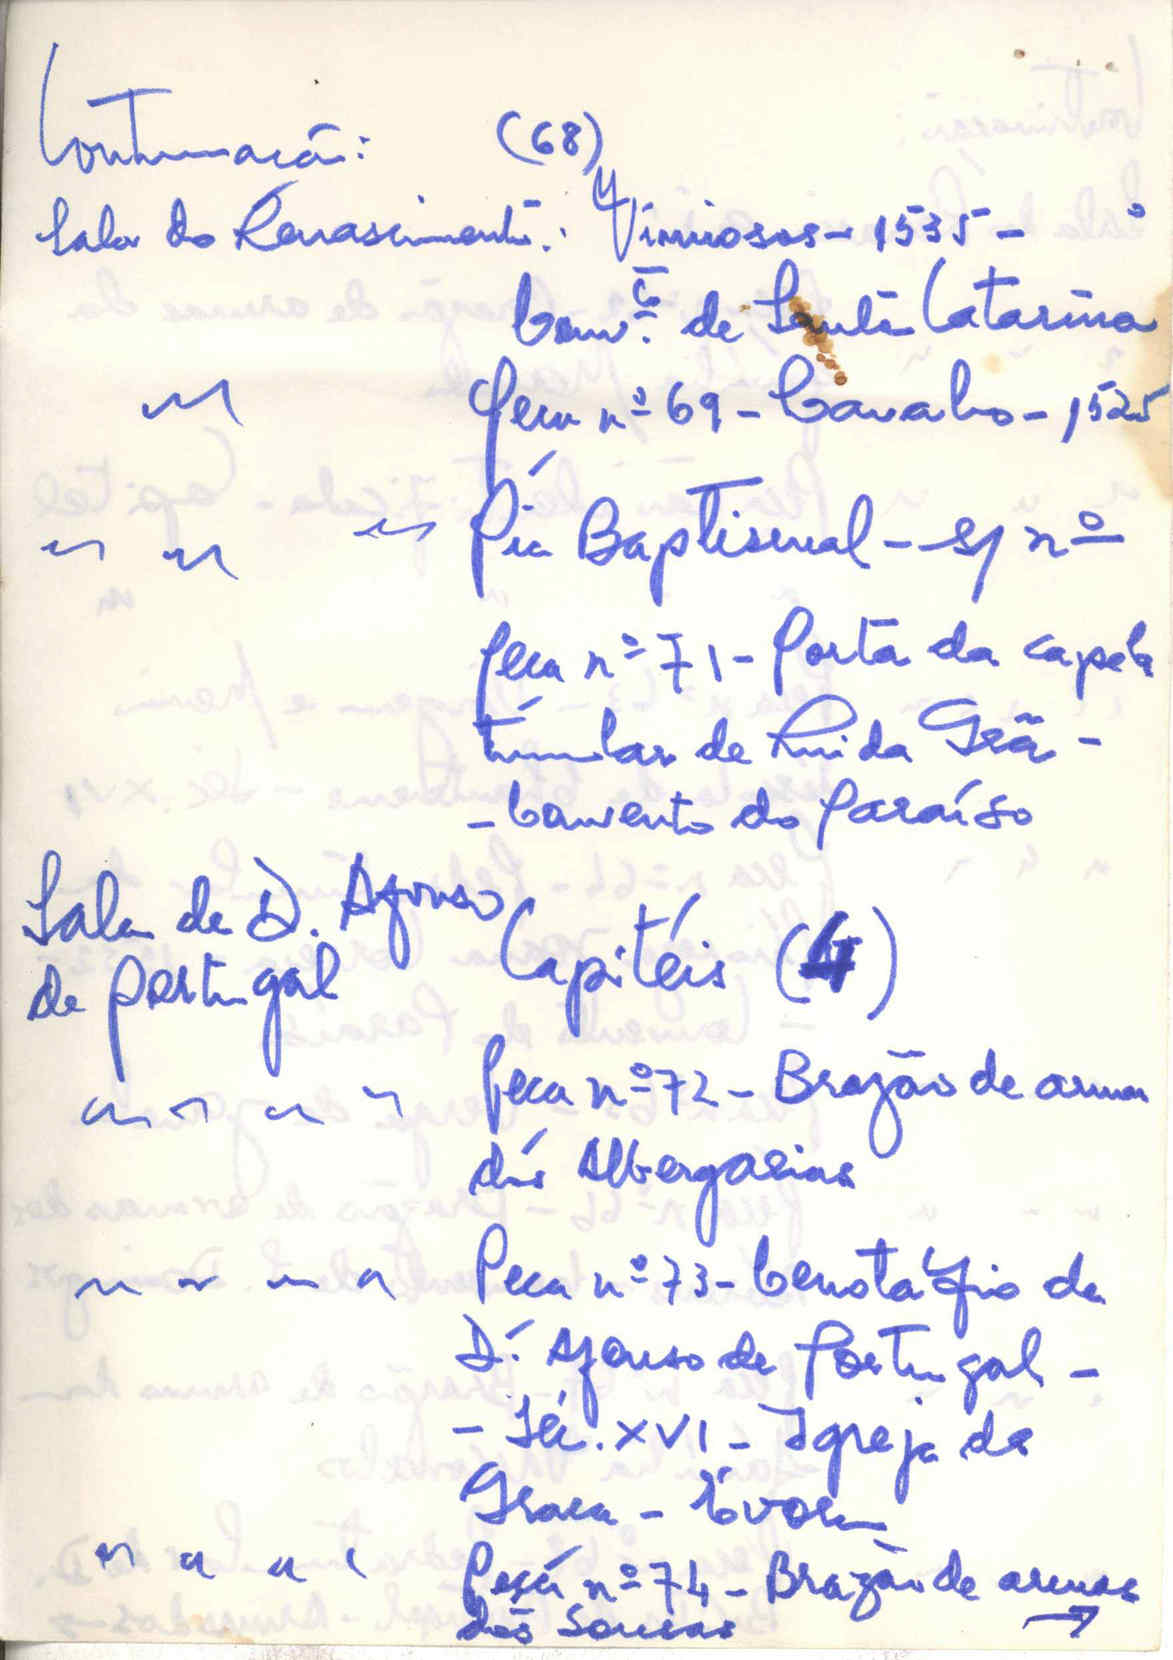 Continuação: (68)
Sala do Renascimento: Vimiosos - 1535 -
Conv.to de Santa Catarina
" Peça nº 69 - Cavalo - 1525
" " " Pia Baptismal - s/ nº
Peça nº 71 - Porta da capela
tumular de Rui da Grã -
- Convento do Paraíso
Sala de D. Afonso
de Portugal Capitéis (4)
" " " " Peça nº 72 - Brazão de armas
dos Albergarias
" " " " Peça nº 73 - Cenotáfio de
D. Afonso de Portugal -
- Séc. XVI - Igreja da
Graça - Évora
" " " " Peça nº 74 - Brazão de armas
dos Sousas →